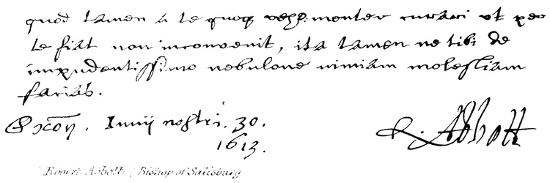 quod tamen à te quoque vehementer curari ut per
te fiat non inconvenit, ita tamen ne tibi de
impudentissimo nebulone nimiam molestiam
facias.
Oxon. Iunij nostri. 30.
1613.
R. Abbott
Robert Abbott, Bishop of Salisbury